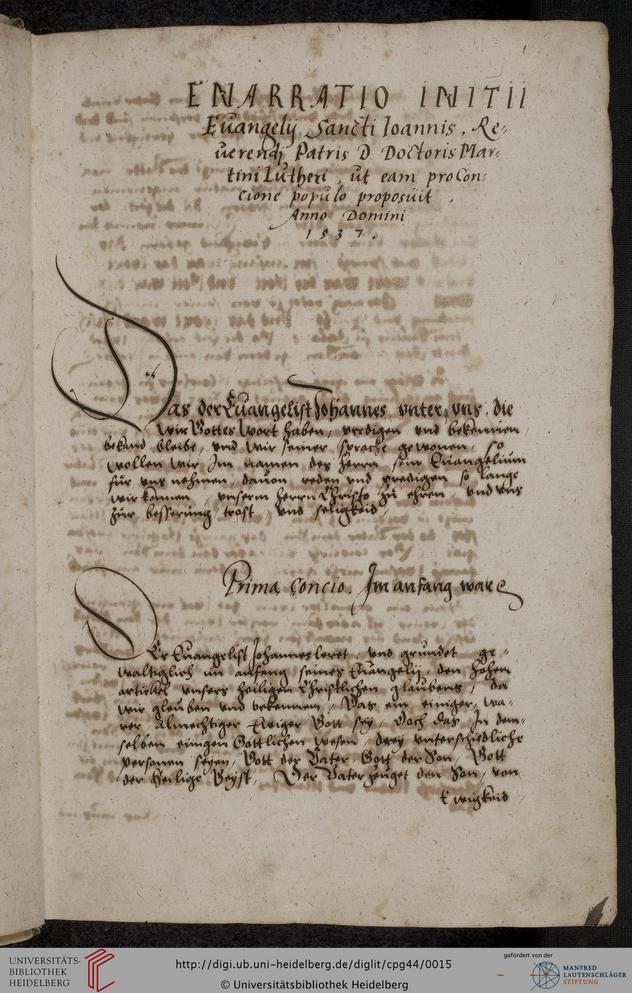 1
ENARRATIO INITII
Euangelij Sancti Ioannis, Re-
uerendj Patris D Doctoris Mar-
tini Lutheri, ut eam pro Con-
cione populo proposuit.
Anno Domini
1537.
Das der Euangelist Johannes unter uns, die
wir Gottes Wort haben, predigen und bekennen,
bekand bleibe, und wir seiner sprache gewonen, so
wollen wir Im namen des Herrn sein Euangelium
für uns nehmen, davon reden und predigen so lange
wir können, unserm Herrn Christo zu ehren, und uns
zur besserung trost, und seligkeid.
Prima Concio. Im anfang ware
Der Euangelist Johannes leret, und gründet ge-
waltiglich im anfang seines Euangelij, den hohen
artickel unsers heiligen Christlichen glaubens, da
wir gleuben und bekennen, Das ein einiger, wa-
rer Almechtiger Ewiger Gott sey, Doch das In dem-
selben einigen Göttlichen wesen, drey unterschiedliche
personen seyen, Gott der Vater Gott der Son, Gott
der Heilige Geyst, Der Vater zeuget den Son, von
Ewigkeid
UNIVERSITÄTS-
BIBLIOTHEK
HEIDELBERG
http://digi.ub.uni-heidelberg.de/diglit/cpg44/0015
© Universitätsbibliothek Heidelberg
gefördert von der
MANFRED
LAUTENSCHLÄGER
STIFTUNG